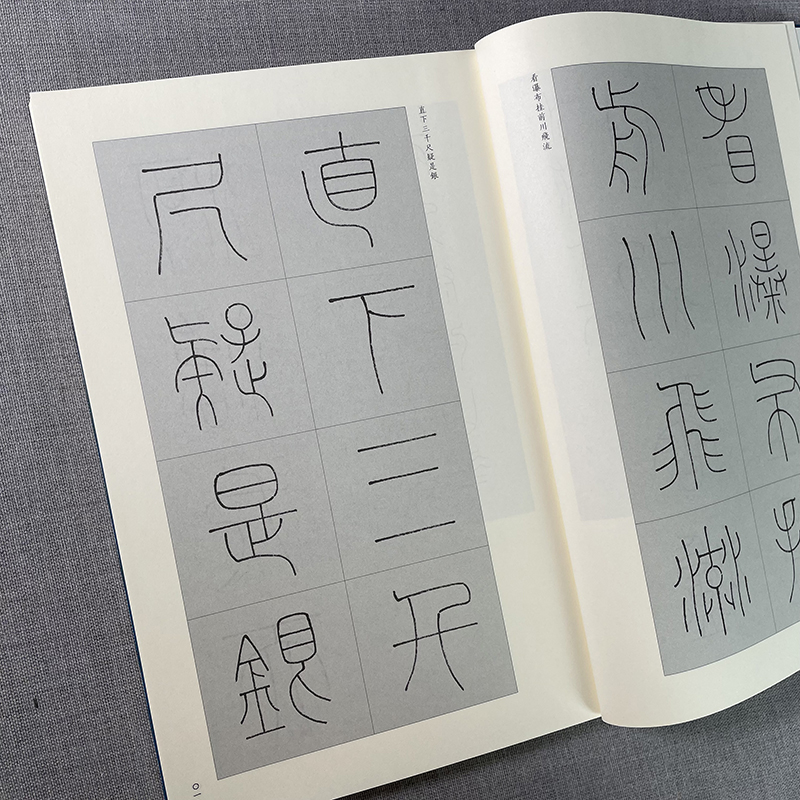 看瀑布挂
前川飛流
看瀑布挂前川飛流
直下三千尺疑是銀
直下三千
尺疑是銀
〇一